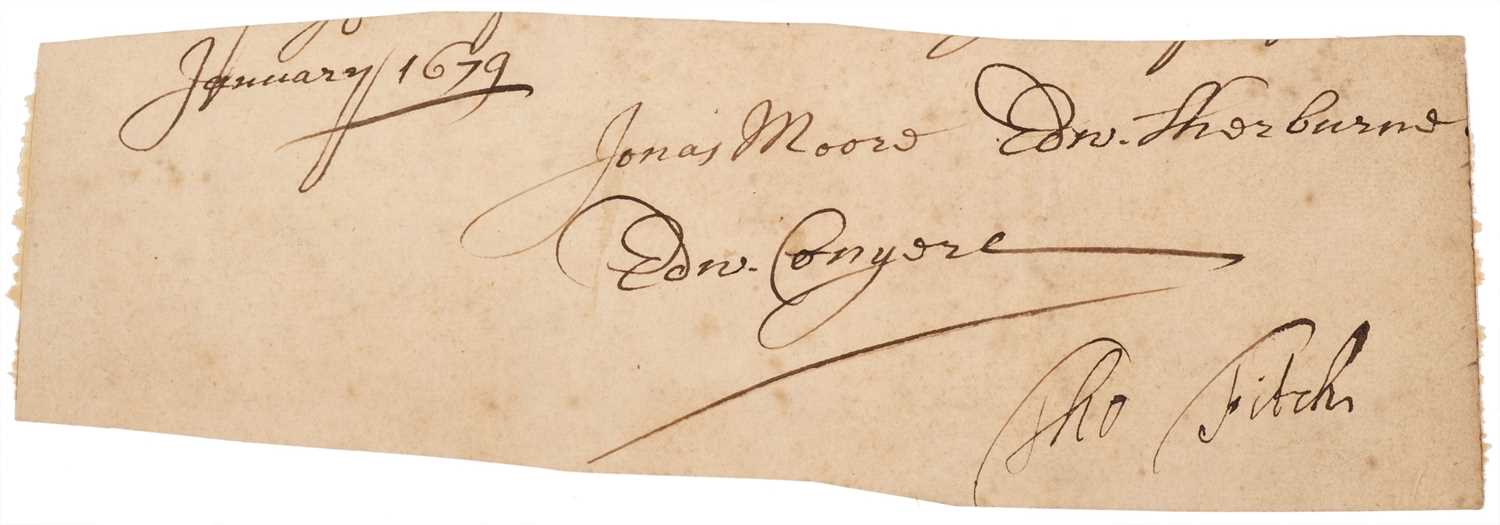 January 1679
Jonas Moore Edw. Sherburne
Edw. Conyers
Tho Fitch